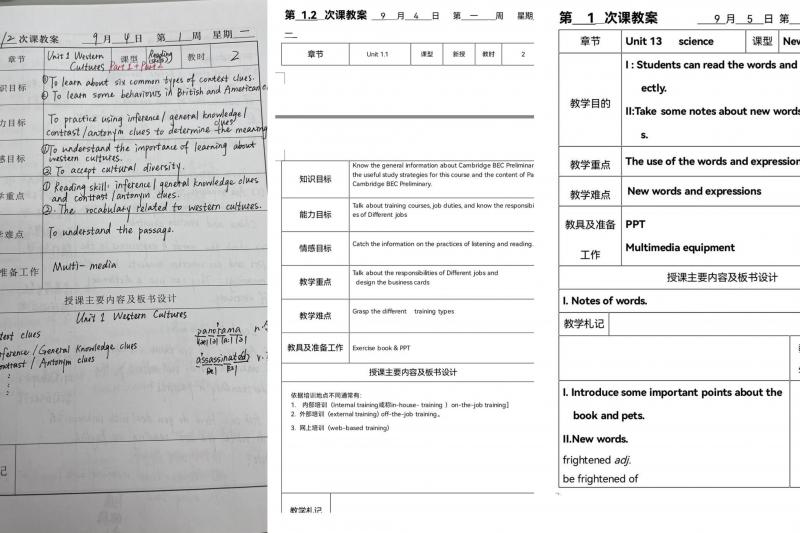 1/2 次课教案 9 月 4 日 第 1 周 星期 一
章节 Unit 1 Western Cultures Part 1 + Part 2 课型 (Reading skills) 教时 2
识目标 ① To learn about six common types of context clues.
② To learn some behaviours in British and American c
力目标 To practice using inference / general knowledge /
contrast / antonym clues to determine the meaning
感目标 ① To understand the importance of learning about
western cultures.
② To accept cultural diversity.
学重点 ① Reading skill: inference / general knowledge clues
and contrast / antonym clues.
② The vocabulary related to western cultures.
学难点 To understand the passage.
准备工作 Multi-media
授课主要内容及板书设计
Unit 1 Western Cultures
text clues
panorama n.
nference / General Knowledge clues
ontrast / Antonym clues
assassinated v.
记
第 1.2 次课教案 9 月 4 日 第 一 周 星期
二
章节 Unit 1.1 课型 新授 教时 2
知识目标 Know the general information about Cambridge BEC Preliminar
the useful study strategies for this course and the content of Pa
Cambridge BEC Preliminary.
能力目标 Talk about training courses, job duties, and know the responsibi
es of Different jobs
情感目标 Catch the information on the practices of listening and reading.
教学重点 Talk about the responsibilities of Different jobs and
design the business cards
教学难点 Grasp the different training types
教具及准备工作 Exercise book & PPT
授课主要内容及板书设计
依据培训地点不同通常有:
1. 内部培训（internal training或称in-house- training ）on-the-job training]
2. 外部培训（external training) off-the-job training。
3. 网上培训（web-based training)
教学札记
第 1 次课教案 9 月 5 日 第
章节 Unit 13 science 课型 New
教学目的 I : Students can read the words and
ectly.
II:Take some notes about new words
s.
教学重点 The use of the words and expression
教学难点 New words and expressions
教具及准备工作 PPT
Multimedia equipment
授课主要内容及板书设计
I. Notes of words.
教学札记
I. Introduce some important points about the
book and pets.
II.New words.
frightened adj.
be frightened of